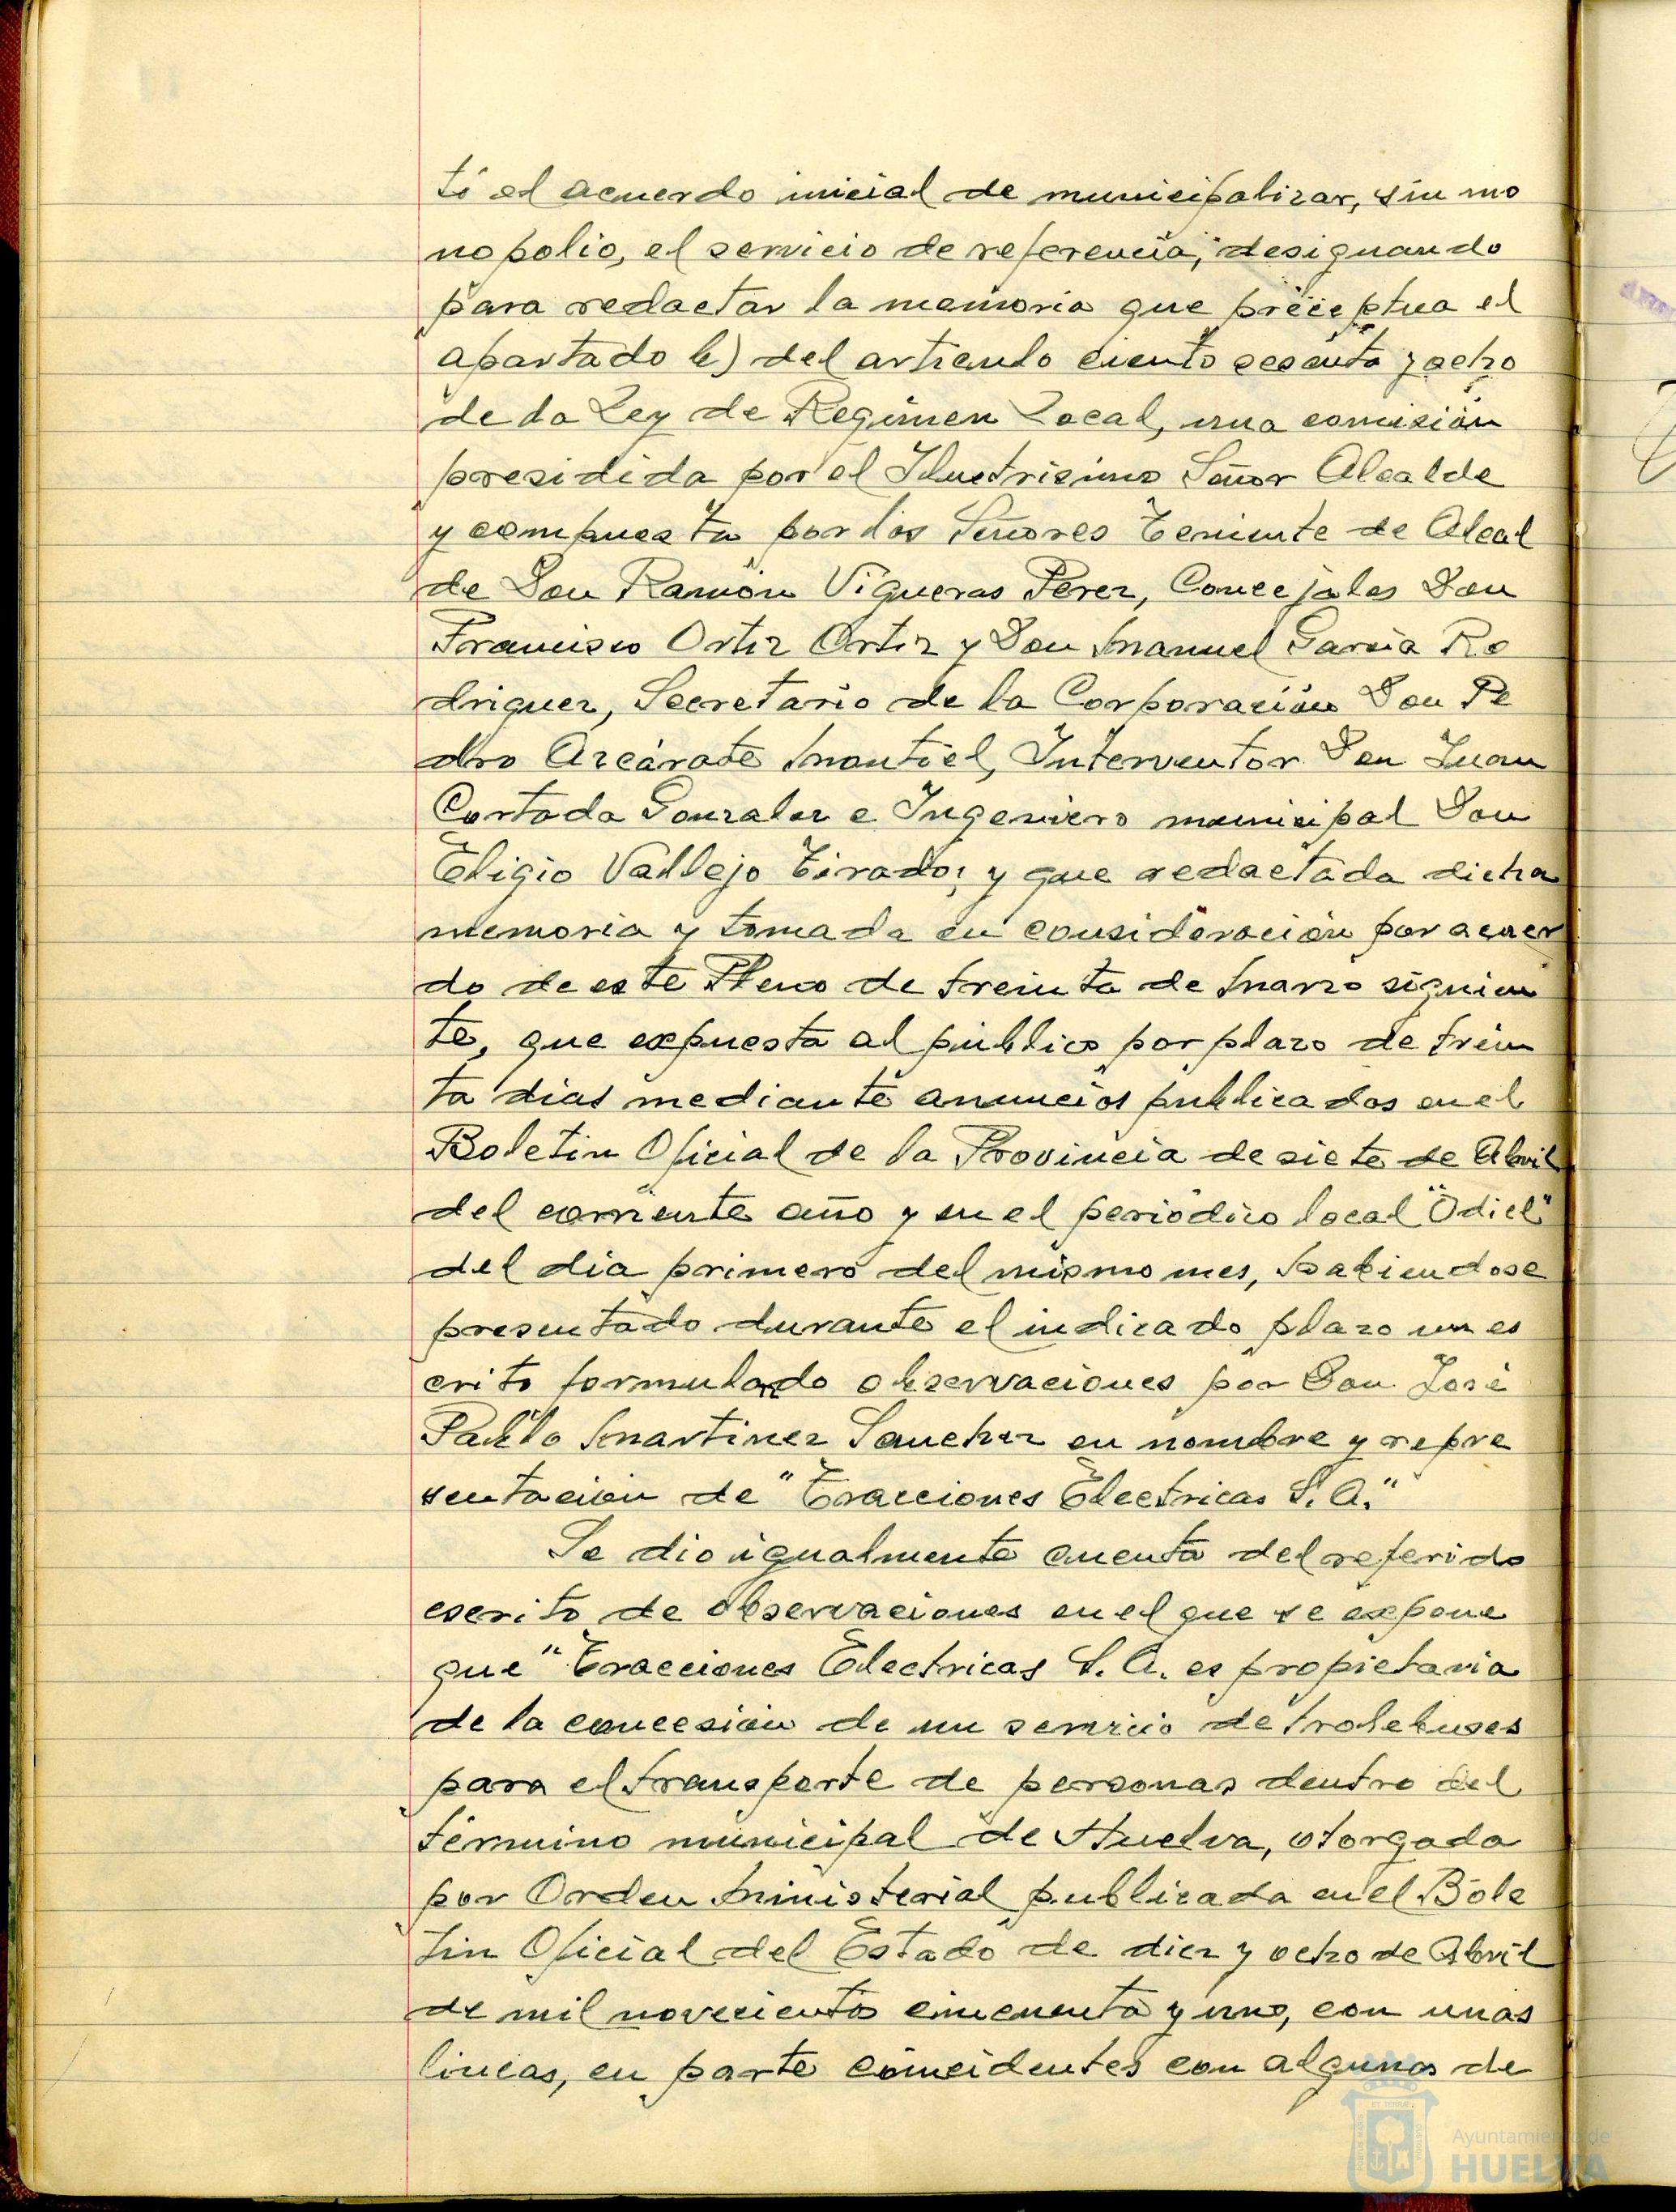 tó el acuerdo inicial de municipalizar, sin mo
nopolio, el servicio de referencia, designando
para redactar la memoria que preceptua el
apartado b) del articulo ciento sesenta y ocho
de la Ley de Regimen Local, una comisión
presidida por el Ilustrisimo Señor Alcalde
y compuesta por los Señores Teniente de Alcal
de Don Ramón Vigueras Perez, Concejales Don
Francisco Ortiz Ortiz y Don Manuel Garcia Ro
driguez, Secretario de la Corporación Don Pe
dro Azcárate Montiel, Interventor Don Juan
Cortada Gonzalez e Ingeniero municipal Don
Eligio Vallejo Tirado; y que redactada dicha
memoria y tomada en consideración por acuer
do de este Pleno de treinta de Marzo siguien
te, que expuesta al público por plazo de trein
ta dias mediante anuncios publicados en el
Boletin Oficial de la Provincia de siete de Abril
del corriente año y en el periódico local "Odiel"
del dia primero del mismo mes, habiendose
presentado durante el indicado plazo un es
crito formulando observaciones por Don José
Pablo Martinez Sanchez en nombre y repre
sentacion de "Tracciones Electricas S. A."
Se dio igualmente cuenta del referido
escrito de observaciones en el que se expone
que "Tracciones Electricas S. A. es propietaria
de la concesión de un servicio de trolebuses
para el transporte de personas dentro del
término municipal de Huelva, otorgada
por Orden Ministerial publicada en el Bole
tin Oficial del Estado de diez y ocho de Abril
de mil novecientos cincuenta y uno, con unas
lineas, en parte coincidentes con algunas de
Ayuntamiento de
HUELVA